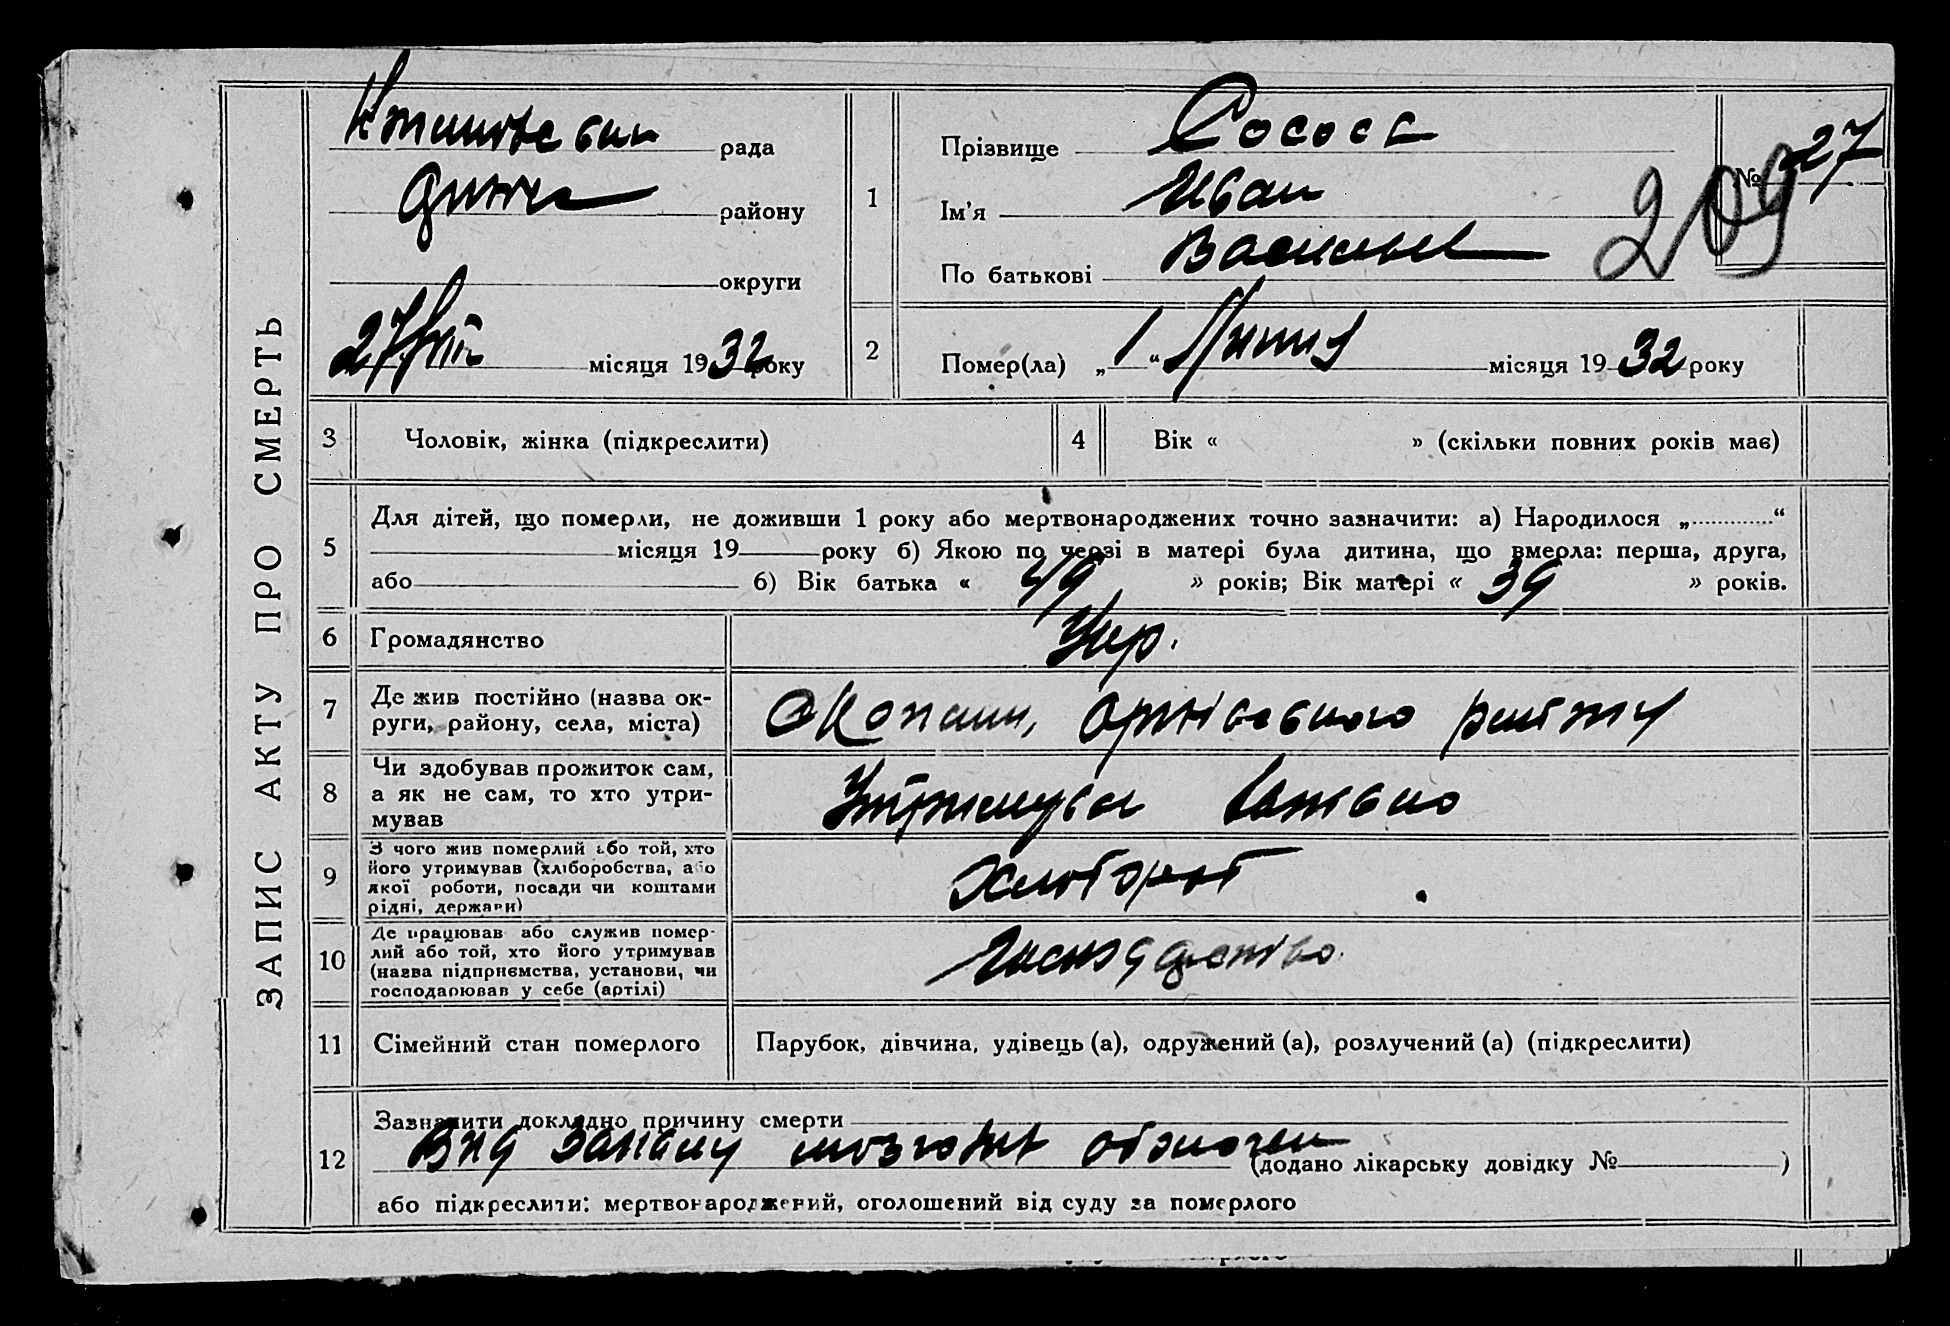 ЗАПИС АКТУ ПРО СМЕРТЬ
рада
району
округи
27/VIII місяця 1932 року
1
Прізвище Сососа
Ім'я Иван
По батькові Васильев
№ 27
209
2
Помер(ла) „ 1 “ Липня місяця 1932 року
3
Чоловік, жінка (підкреслити)
4
Вік « » (скільки повних років має)
5
Для дітей, що померли, не доживши 1 року або мертвонароджених точно зазначити: а) Народилося „ “
місяця 19 року б) Якою по черзі в матері була дитина, що вмерла: перша, друга,
або б) Вік батька « 49 » років; Вік матері « 39 » років.
6
Громадянство
Укр.
7
Де жив постійно (назва ок-
руги, району, села, міста)
Окопани,
8
Чи здобував прожиток сам,
а як не сам, то хто утри-
мував
Утримував батько
9
З чого жив померлий або той, хто
його утримував (хліборобства, або
якої роботи, посади чи коштами
рідні, держави)
Хлібороб
10
Де працював або служив помер-
лий або той, хто його утримував
(назва підприємства, установи, чи
господарював у себе (артілі)
11
Сімейний стан померлого
Парубок, дівчина, удівець (а), одружений (а), розлучений (а) (підкреслити)
12
Зазначити докладно причину смерти
Від запалу мозгових оболочек (додано лікарську довідку № )
або підкреслити: мертвонароджений, оголошений від суду за померлого